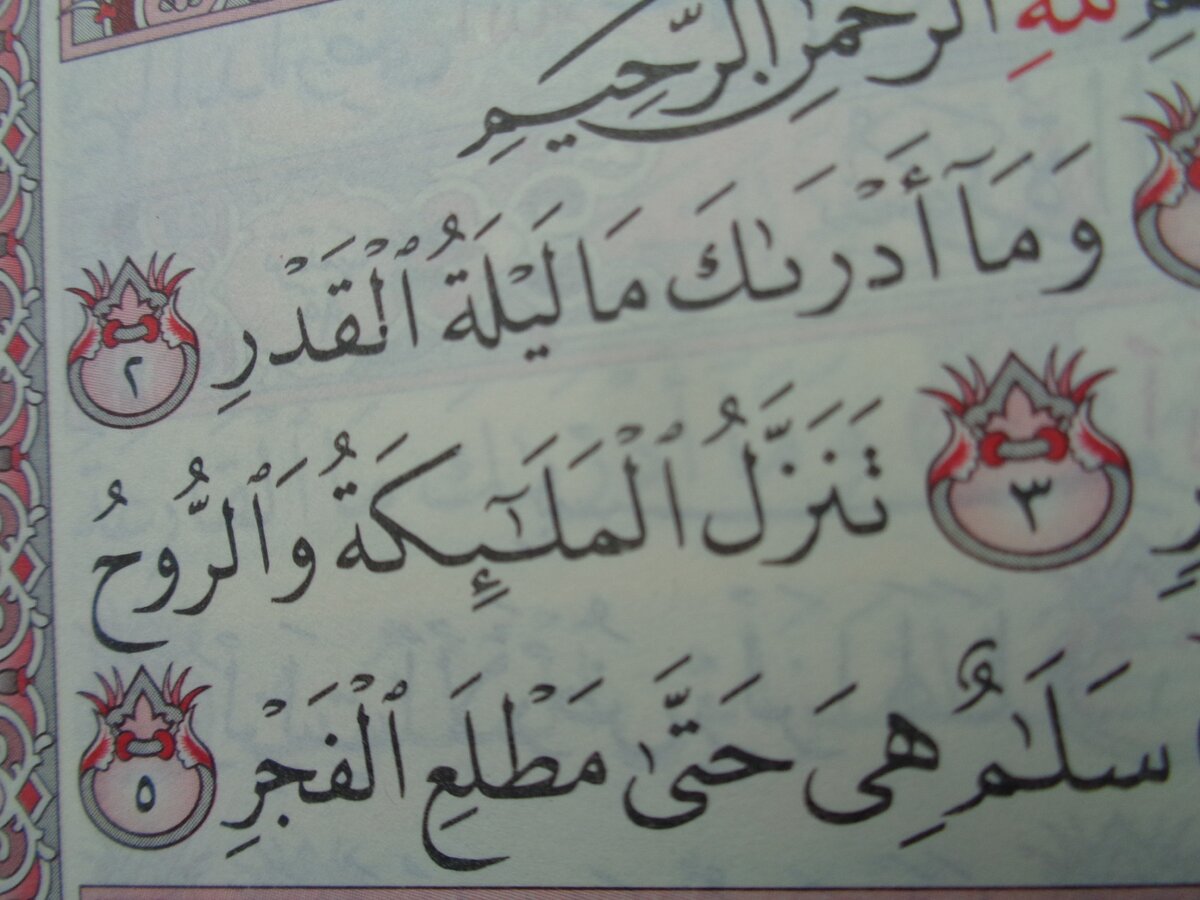 للهِ الرَّحْمَٰنِ الرَّحِيمِ
وَمَآ أَدْرَىٰكَ مَا لَيْلَةُ ٱلْقَدْرِ ٢
٣ تَنَزَّلُ ٱلْمَلَـٰٓئِكَةُ وَٱلرُّوحُ
سَلَـٰمٌ هِىَ حَتَّىٰ مَطْلَعِ ٱلْفَجْرِ ٥